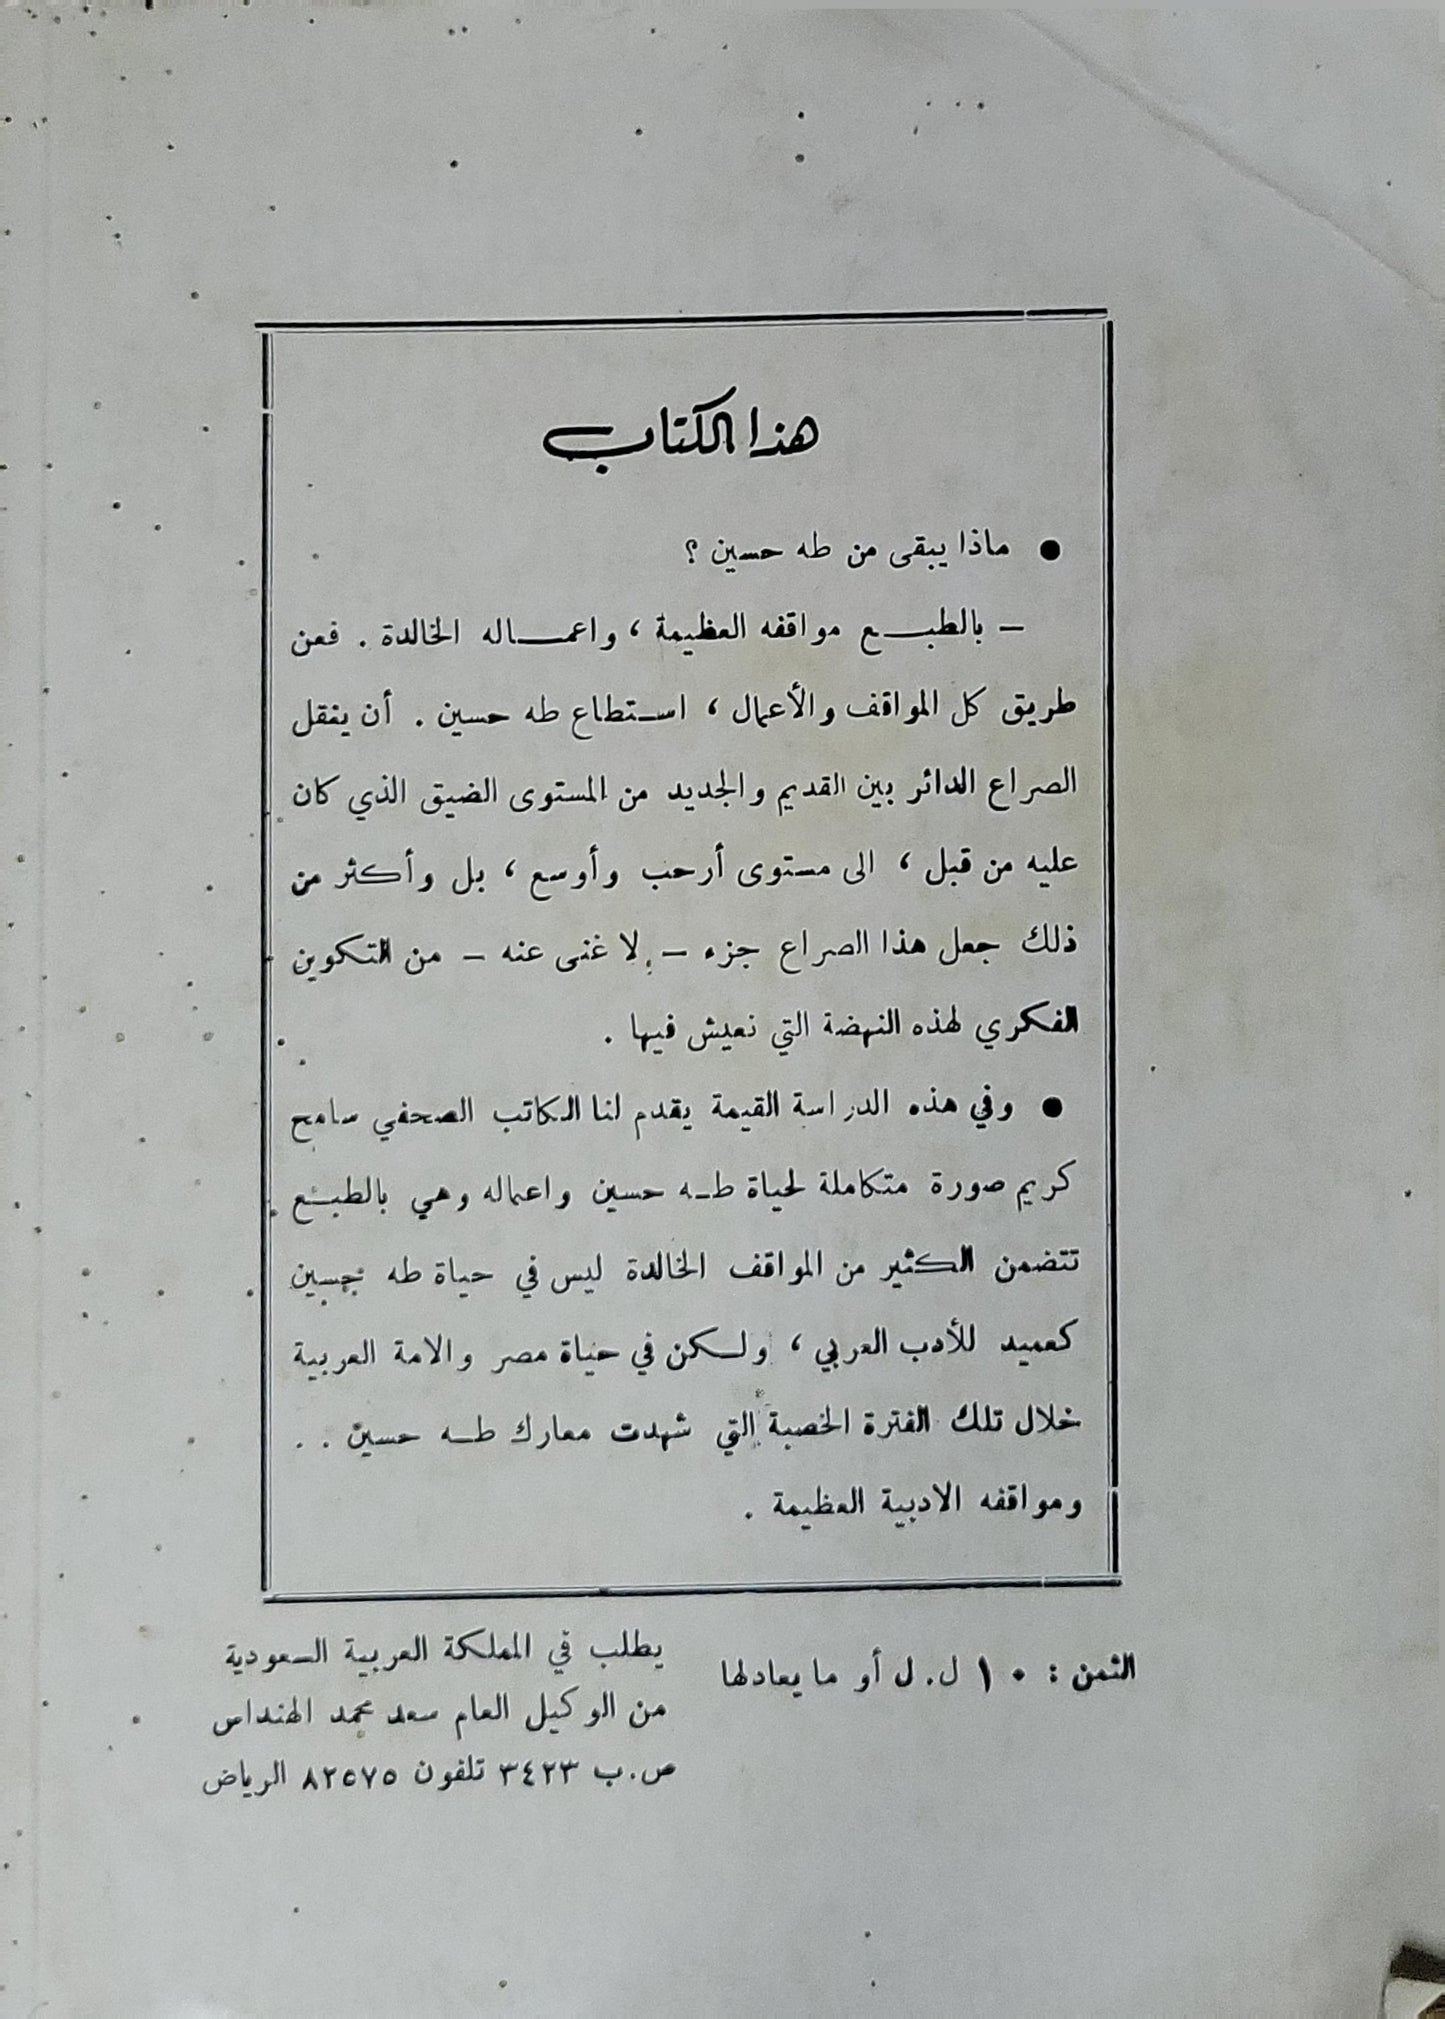 هذا الكتاب
● ماذا يبقى من طه حسين ؟
– بالطبـــع مواقفه العظيمة ، واعمـــاله الخالدة . فعن
طريق كل المواقف والأعمال ، استطاع طه حسين . أن ينقل
الصراع الدائر بين القديم والجديد من المستوى الضيق الذي كان
عليه من قبل ، الى مستوى أرحب وأوسع ، بل وأكثر من
ذلك جعل هذا الصراع جزء – لا غنى عنه – من التكوين
الفكري لهذه النهضة التي نعيش فيها .
● وفي هذه الدراسة القيمة يقدم لنا الكاتب الصحفي سامح
كريم صورة متكاملة لحياة طـه حسين واعماله وهي بالطبـع
تتضمن الكثير من المواقف الخالدة ليس في حياة طه حسين
كعميد للأدب العربي ، ولـكن في حياة مصر والامة العربية
خلال تلك الفترة الخصبة التي شهدت معارك طـه حسين . .
ومواقفه الادبية العظيمة .
الثمن : ١٠ ل.ل أو ما يعادلها
يطلب في المملكة العربية السعودية
من الوكيل العام سعد محمد الهنداس
ص.ب ٣٤٢٣ تلفون ٨٢٥٧٥ الرياض